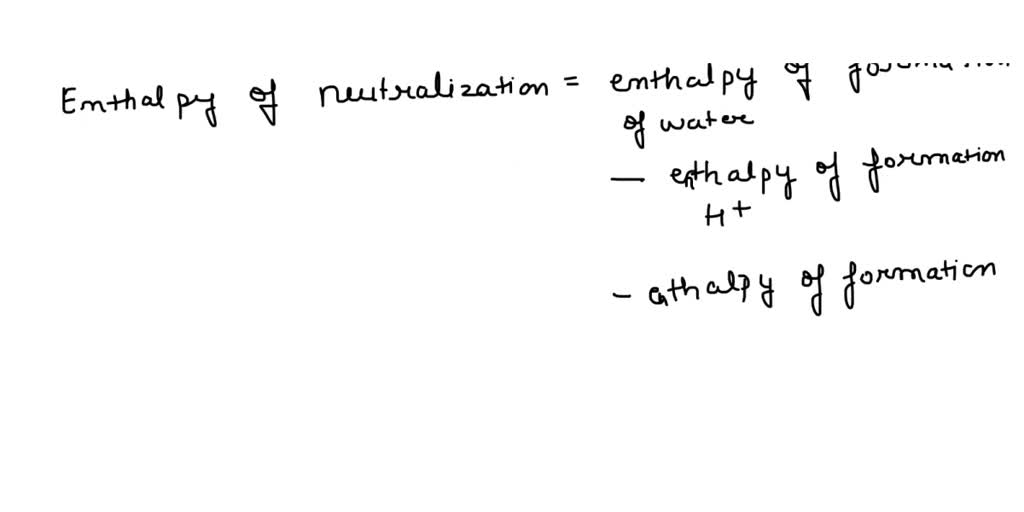 Enthalpy of neutralization = enthalpy of
of water
— enthalpy of formation
H+
- enthalpy of formation